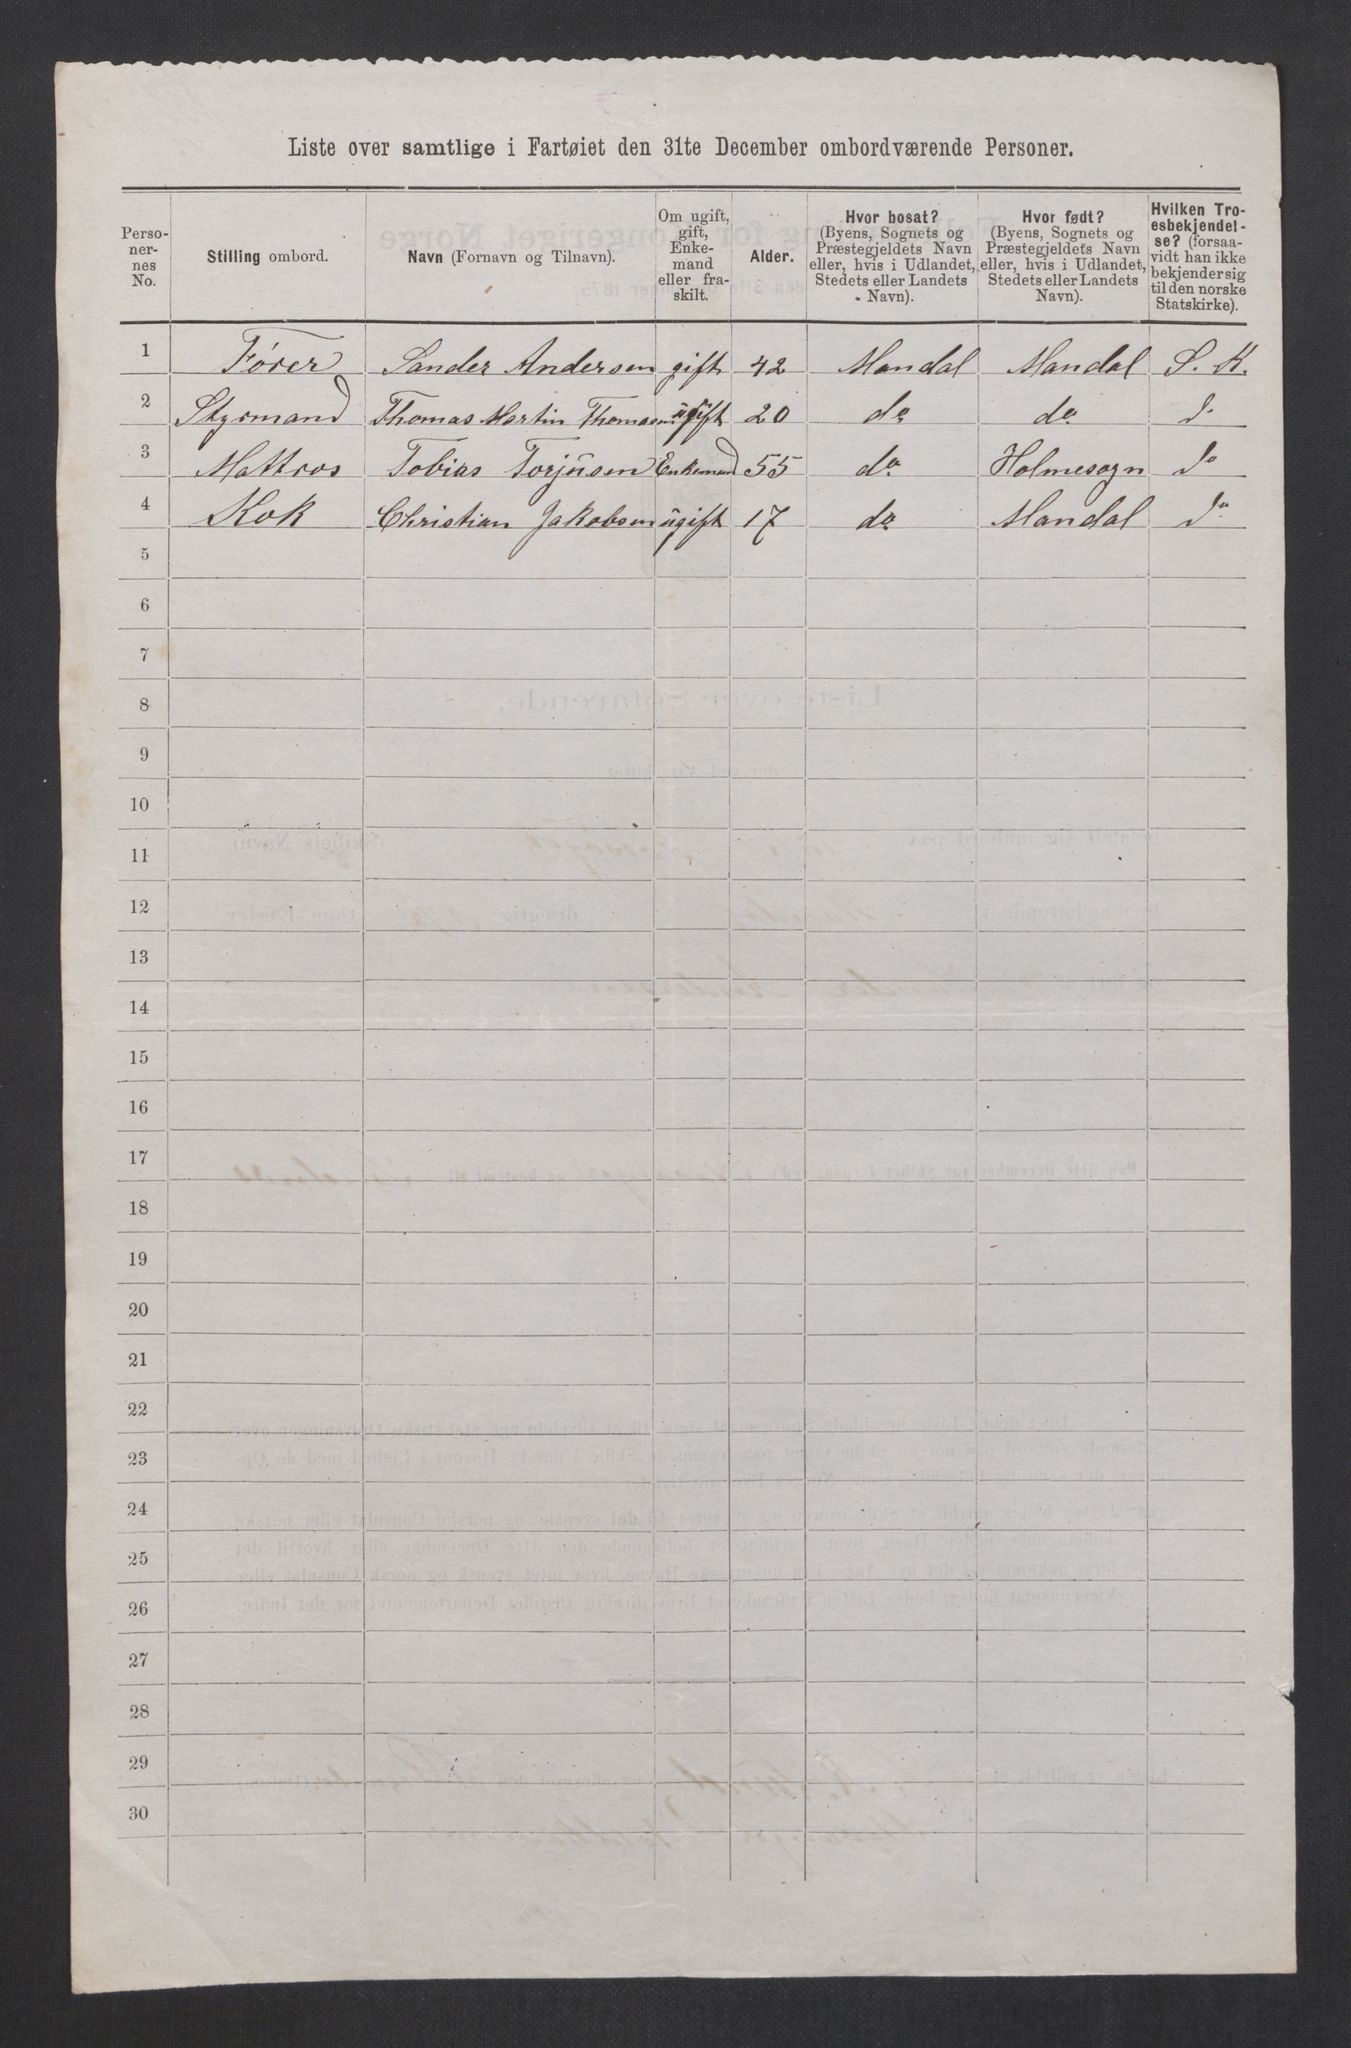 Liste over samtlige i Fartøiet den 31te December ombordværende Personer.
Perso-
ner-
nes
No.
Stilling ombord.
Navn (Fornavn og Tilnavn).
Om ugift,
gift,
Enke-
mand
eller fra-
skilt.
Alder.
Hvor bosat?
(Byens, Sognets og
Præstegjeldets Navn
eller, hvis i Udlandet,
Stedets eller Landets
Navn).
Hvor født?
(Byens, Sognets og
Præstegjeldets Navn
eller, hvis i Udlandet,
Stedets eller Landets
Navn).
Hvilken Tro-
esbekjendel-
se? (forsaa-
vidt han ikke
bekjender sig
til den norske
Statskirke).
1 Fører Sander Andersen gift 42 Mandal Mandal S. K.
2 Styrmand Thomas Martin Thomasen ugift 20 do do do
3 Matros Tobias Torjusen Enkemand 55 do Holmesogn do
4 Kok Christian Jakobsen ugift 17 do Mandal do
5
6
7
8
9
10
11
12
13
14
15
16
17
18
19
20
21
22
23
24
25
26
27
28
29
30